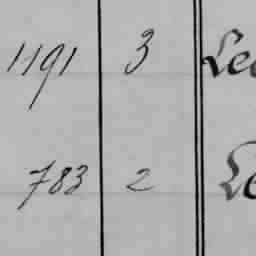 1191 3 Le
783 2 Le